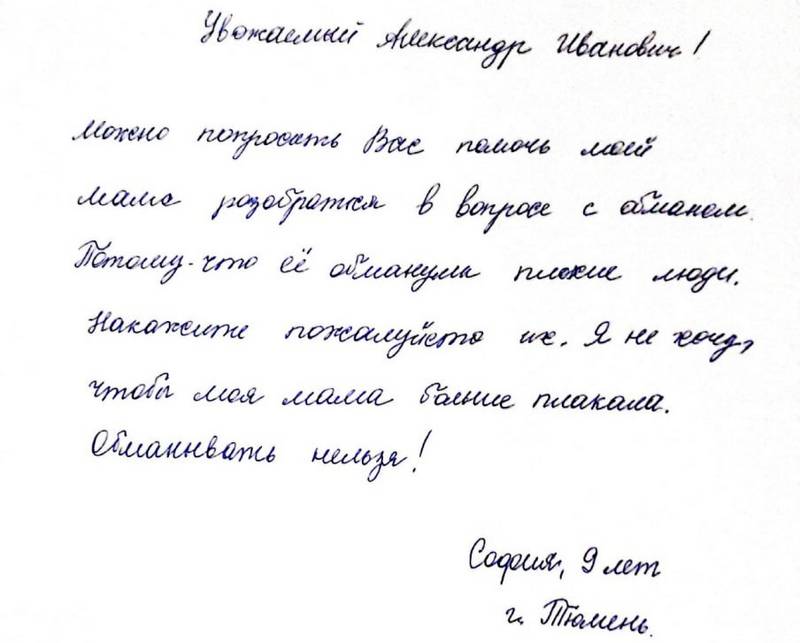 Уважаемый Александр Иванович!
Можно попросить Вас помочь моей
маме разобраться в вопросе с обманом.
Потому-что её обманули плохие люди.
Накажите пожалуйста их. Я не хочу,
чтобы моя мама больше плакала.
Обманывать нельзя!
София, 9 лет
г. Тюмень.